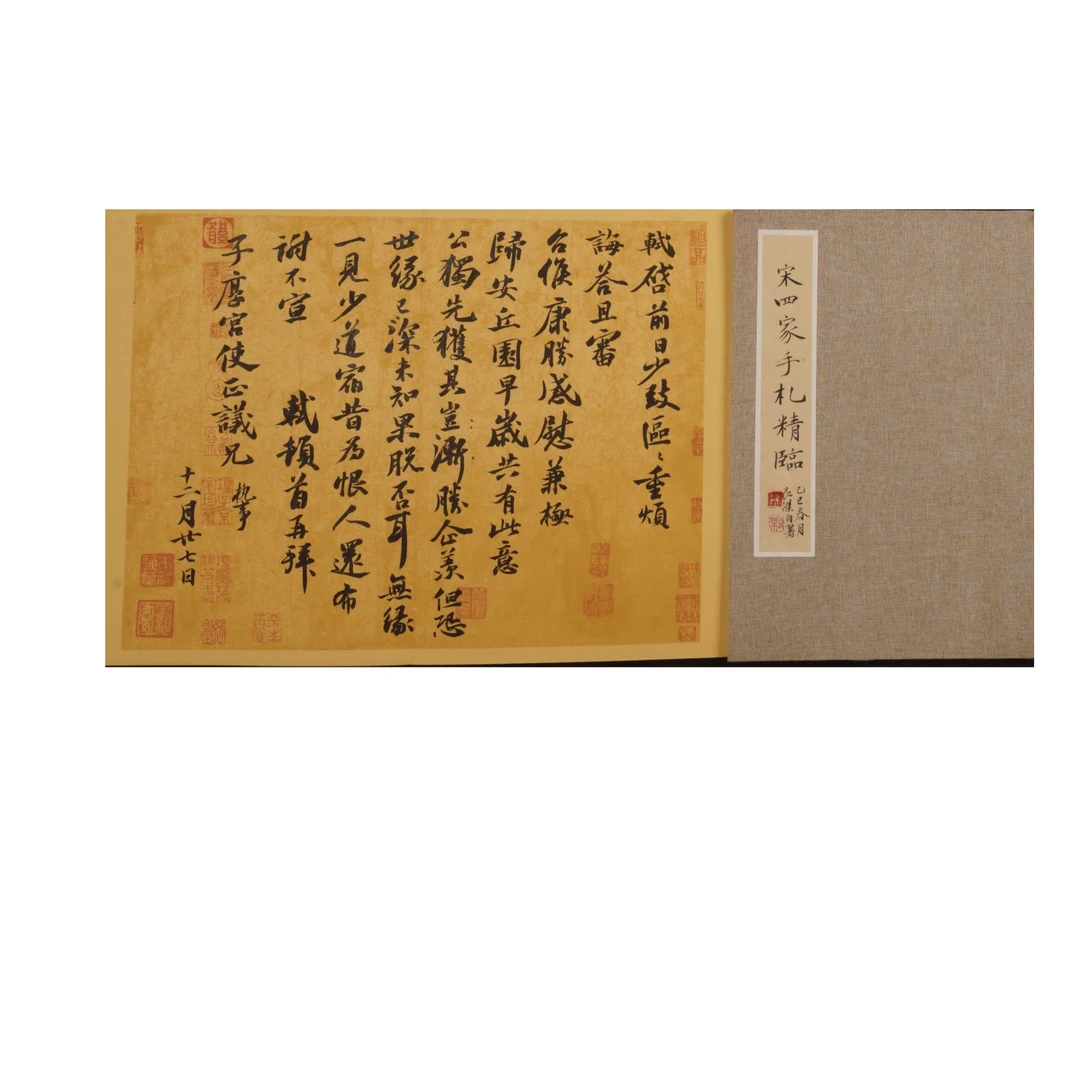 宋四家手札精臨
乙巳春月
軾啓前日少致區〻重煩
誨荅且審
台候康勝感慰兼極
歸安丘園早歲共有此意
公獨先獲其豈漸勝企羨但恐
世緣已深未知果脫否耳無緣
一見少道宿昔為恨人還布
謝不宣 軾頓首再拜
子厚宮使正議兄 執事
十二月廿七日